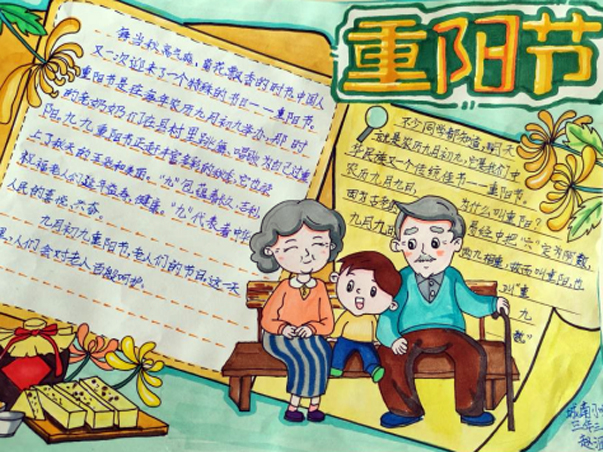 重阳节
每当秋高气爽,菊花飘香的时节中国人
又一次迎来了一个特殊的节日——重阳节。
重阳节是在每年农历九月初九举办,那时
的老奶奶们在县村里跳舞、唱歌为自己过重
阳。九九重阳节正好丰富多彩的秋季,它诠释
上了秋天的丰弥和美丽。"九"包花着长久、吉利,
祝福老人们延年益寿、健康。"九"代表着中华
人民的喜悦、兴奋。
九月初九重阳节,老人们的节日这一天
里,人们会对老人百般呵护。
不少同学都知道,明天
就是农历九月初九,它是我们中
华民族又一个传统佳节——重阳节。
农历九月九日,
为什么叫重阳?
因为古老的
是经中把"六"定为阴数,
九月九日,
两九相重,故而叫重阳,也
叫"重
九
数"
城南小
三年三
赵